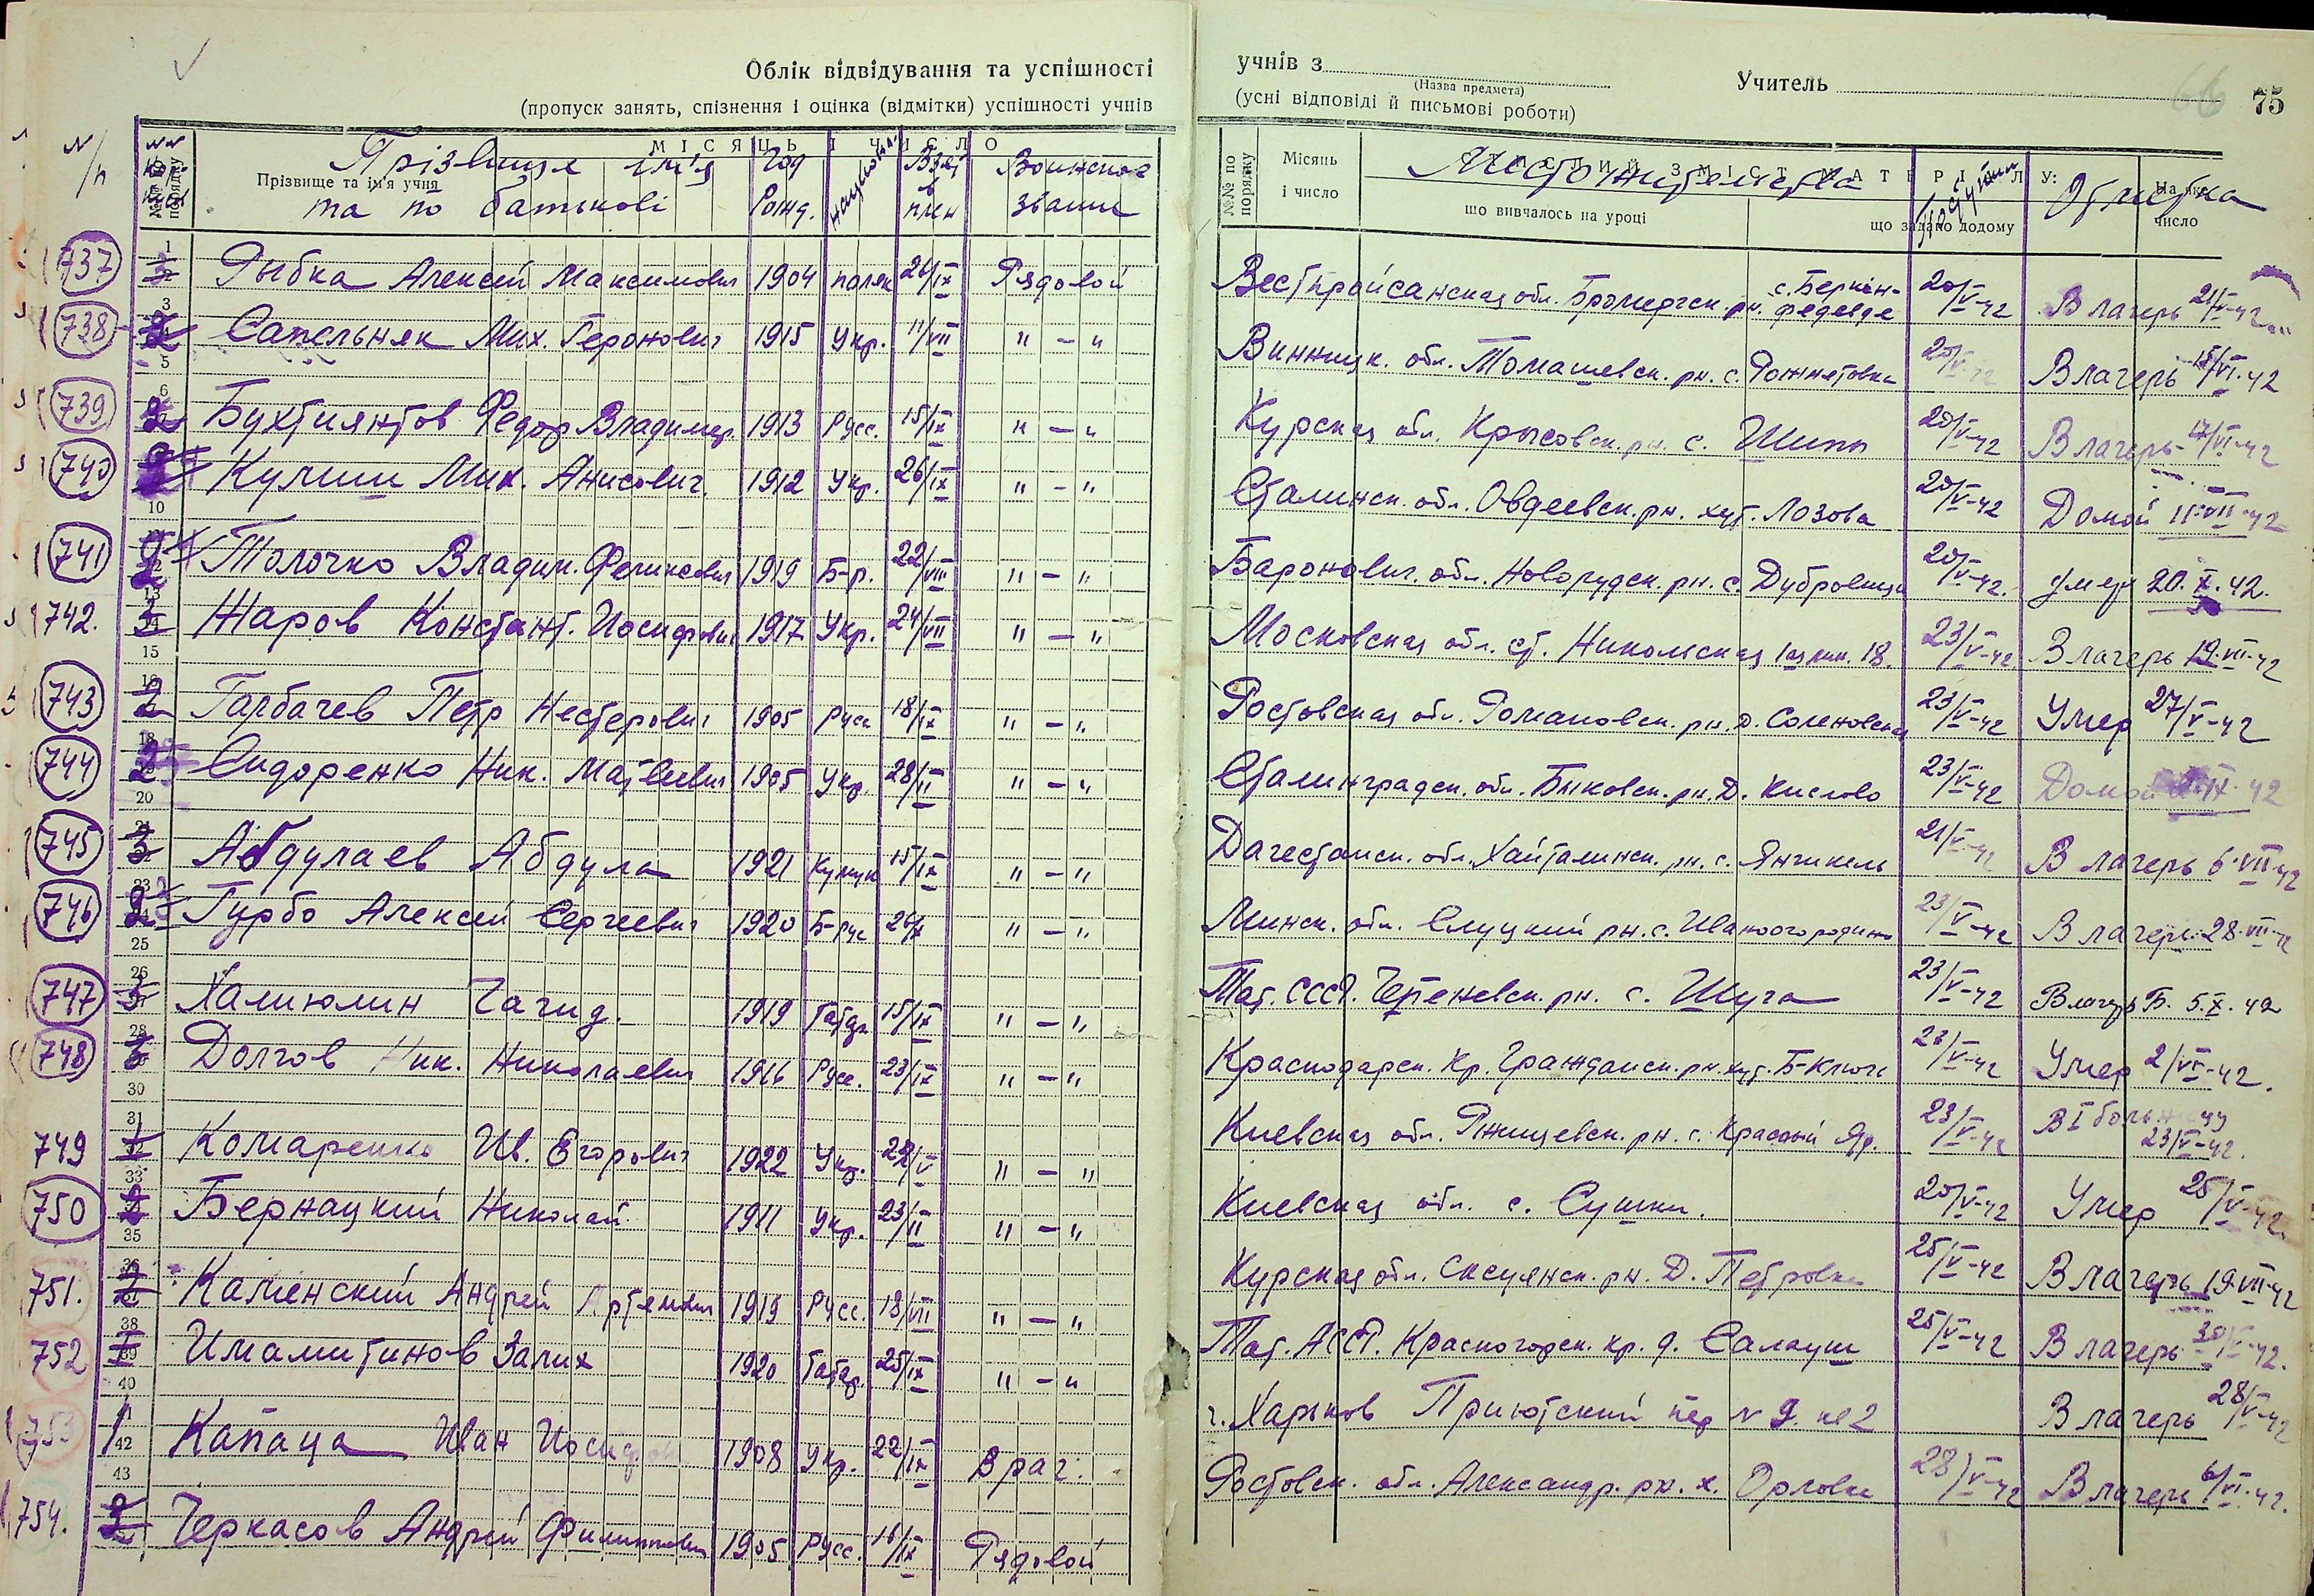 Облік відвідування та успішності
(пропуск занять, спізнення і оцінка (відмітки) успішності учнів
учнів з
(Назва предмета)
Учитель
(усні відповіді й письмові роботи)
66
75
N/п
№№ по порядку
МІСЯЦЬ І ЧИСЛО
Прізвище та ім'я учня
Прізвище ім'я та по батькові
Год Рожд.
национ.
Взят в плен
Воинское звание
№№ по порядку
Місяць і число
що вивчалось на уроці
Местожительства
що задано додому
Отметка
На яке число
737 Рыбка Алексей Максимович 1904 поляк 26/IX Рядовой с. Беркен- 20/V-42 В лагерь 21/V-42
738 Сапельняк Мих. Геронович 1915 Укр. 11/VII " — " Винницк. обл. Томашевск. рн. с. 20/V-42 В лагерь 15/VI-42
739 Бухтиянтов Федор Владимир. 1913 Русс. 15/IX " — " Курская обл. Крысовск. рн. с. Шипы 20/V-42 В лагерь 17/VI-42
740 Кулиш Мих. Анисович. 1912 Укр. 26/IX " — " Сталинск. обл. Овдеевск. рн. хут. Лозова 20/V-42 Домой 11-VII-42
741 Толочко Владим. Феликсович 1919 Б-р. 22/VIII " — " Баронович. обл. Новогрудск. рн. с. Дубровица 20/V-42. умер 20.X.42.
742. Жаров Констант. Иосифович 1917 Укр. 24/VII " — " Московская обл. ст. Никольская 18. 23/V-42 В лагерь 19-VII-42
743 Гарбачев Петр Нестерович 1905 Русс 18/IX " — " Ростовская обл. Романовск. рн. д. Соленовская 23/V-42 Умер 27/V-42
744 Сидоренко Ник. Матвеевич 1905 Укр. 28/II " — " Сталинградск. обл. Быковск. рн. Д. Кислово 23/V-42 Домой IX-42
745 Абдулаев Абдула 1921 Кумык 15/IX " — " Дагестанск. обл. Хайталинск. рн. с. Янгикель 21/V-42 В лагерь 6-VII-42
746 Гурбо Алексей Сергеевич 1920 Б-рус " — " Минск. обл. Слуцкий рн. с. 23/V-42 В лагерь 28-VII-42
747 Халиюлин Гагид. 1919 Татар 15/IX " — " Тат. СССР. рн. с. Шуга 23/V-42 В лагерь Б. 5.X.42
748 Долгов Ник. Николаевич 1916 Русс. 23/IX " — " Краснодарск. Кр. Гражданск. рн. хут. Б-Ключ 23/V-42 Умер 2/VI-42.
749 Комаренко Ив. Егорович 1922 Укр. 22/V " — " Киевская обл. Ржищевск. рн. с. Красный Яр. 23/V-42 В I больницу 23/V-42.
750 Бернацкий Николай 1911 Укр. 23/II " — " Киевская обл. с. Сушки. 20/V-42 Умер 25/V-42
751. Каменский Андрей Артемович 1919 Русс. 18/VII " — " Курская обл. рн. Д. Петровка 25/V-42 В лагерь 19-VII-42
752 Имамитинов Залих 1920 Татар. 25/IX " — " Тат. АССР. Красногорск. кр. д. Салауш 25/V-42 В лагерь 30/V-42.
753 Капаца Иван Иосифов 1908 Укр. 22/IX Врач. г. Харьков Приютский пер N 9. кв 2 В лагерь 28/V-42
754. Черкасов Андрей Филиппович 1905 Русс. 16/IX Рядовой Ростовск. обл. Александр. рн. х. Орловка 28/V-42 В лагерь 6/VI-42.